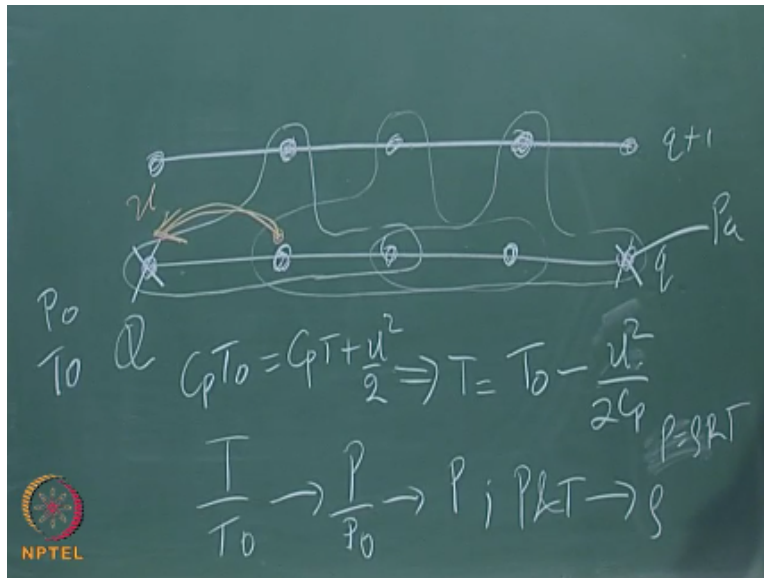 q+1
u
Pa
q
P0
T0
Q
CpT0 = CpT + u²/2 ⇒ T = T0 − u²/2Cp
P=ρRT
T/T0 → P/P0 → P ; P&T → ρ
NPTEL